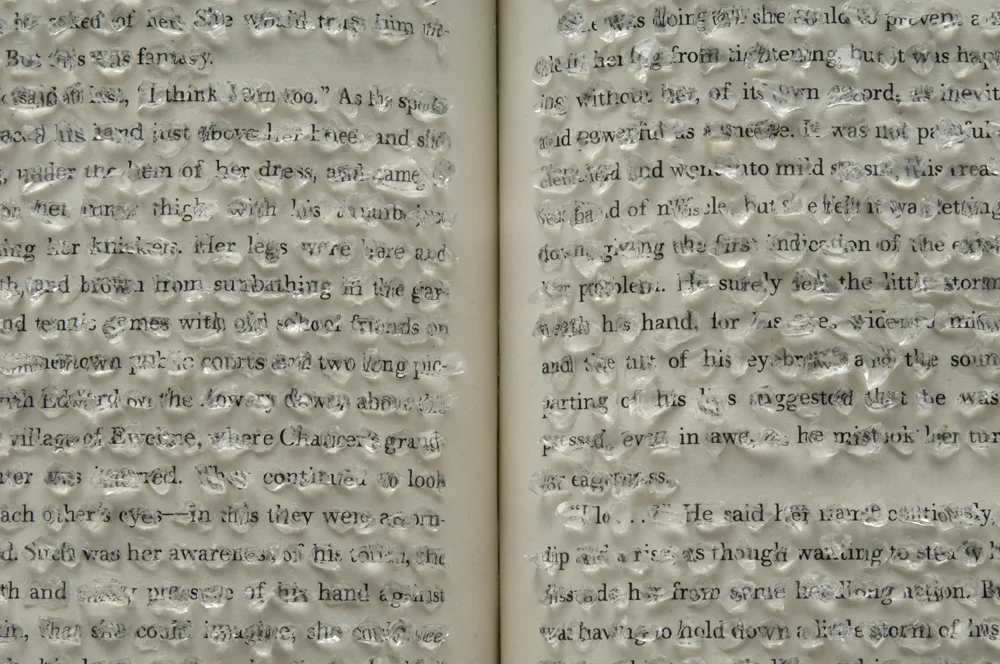 he asked of her. She would trust him
But this was fantasy.
said at last, "I think I am too." As he spoke
his hand just above her knee and
under the hem of her dress, and came
her inner thigh, with his thumb just
ing her knickers. Her legs were bare and
th, and brown from sunbathing in the gar-
nd tennis games with old school friends on
town public courts and two long pic-
with Edward on the flowery downs above the
village of Ewelme, where Chaucer's grand-
was interred. They continued to look
ach other's eyes—in this they were accom-
d. Such was her awareness of his touch, the
th and pressure of his hand against
in, that she could imagine, she could see
was doing all she could to prevent a
in her leg from tightening, but it was happ
ing without her, of its own accord, as inevit
and powerful as a sneeze. It was not painful
clenched and went into mild spasm, this treac
band of muscle, but she felt it was letting
down, giving the first indication of the
her problem. He surely felt the little storm
neath his hand, for his eyes widened
and the tilt of his eyebrows and the soun
parting of his lips suggested that he was
pressed, even in awe, as he mistook her tur
for eagerness.
"Flo . . . ?" He said her name cautiously,
dip and a rise, as though wanting to steady h
dissuade her from some headlong action. Bu
was having to hold down a little storm of his